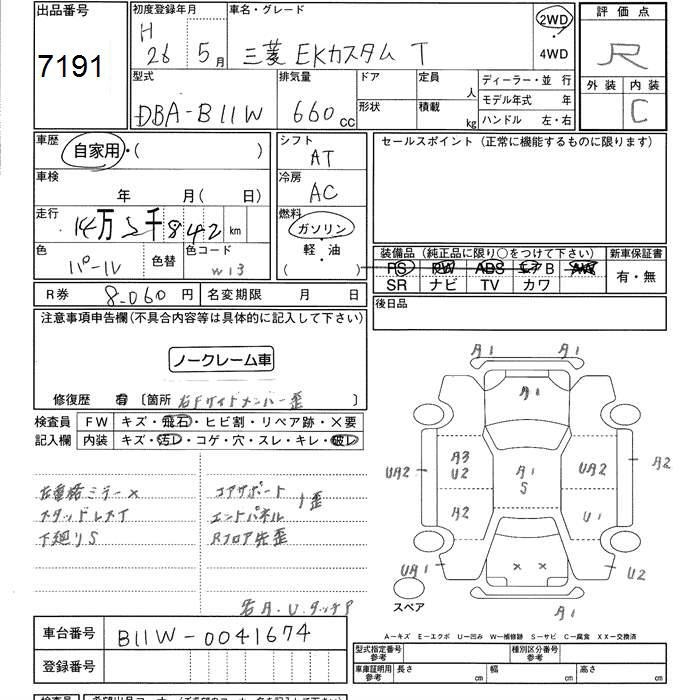 出品番号
7191
初度登録年月
H
26 5月
車名・グレード
三菱 EKカスタム T
2WD
・
4WD
評価点
R
外装 内装
C
型式
DBA-B11W
排気量
660cc
ドア
形状
定員
人
積載
kg
ディーラー・並 行
モデル年式 年
ハンドル 左・右
車歴
自家用・( )
車検
年 月( 日)
走行
14万 5千 842 km
色
パール
色替
色コード
W13
シフト
AT
冷房
AC
燃料
ガソリン
・
軽・油
( )
セールスポイント(正常に機能するものに限ります)
装備品(純正品に限り○をつけて下さい)
PS PW ABS エアB AW
SR ナビ TV カワ
新車保証書
有・無
後日品
R券 8.060 円
名変期限 月 日
注意事項申告欄(不具合内容等は具体的に記入して下さい)
ノークレーム車
修復歴 有 〔箇所 右Fサイドメンバー歪 〕
検査員
記入欄
FW キズ・飛石・ヒビ割・リペア跡・×要
内装 キズ・汚レ・コゲ・穴・スレ・キレ・破レ
左電格ミラー×
スタッドレスT
下廻りS
コアサポート
エンドパネル
1歪
Rフロア先歪
右A・U・タッチア
A1 A1
A1
UA2
A3
U2
A2
A1
S
UA2
U1
A2
× ×
UA1
U2
A1
スペア
A−キズ E−エクボ U−凹み W−補修跡 S−サビ C−腐食 XX−交換済
車台番号
B11W-0041674
登録番号
型式指定番号
参考
種別区分番号
参考
車庫証明用
参考
長さ cm
幅 cm
高さ cm